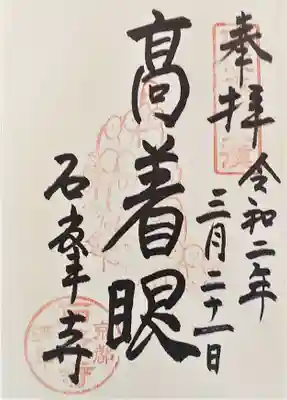 奉拝
令和二年
三月二十一日
高着眼
石峯寺
京都